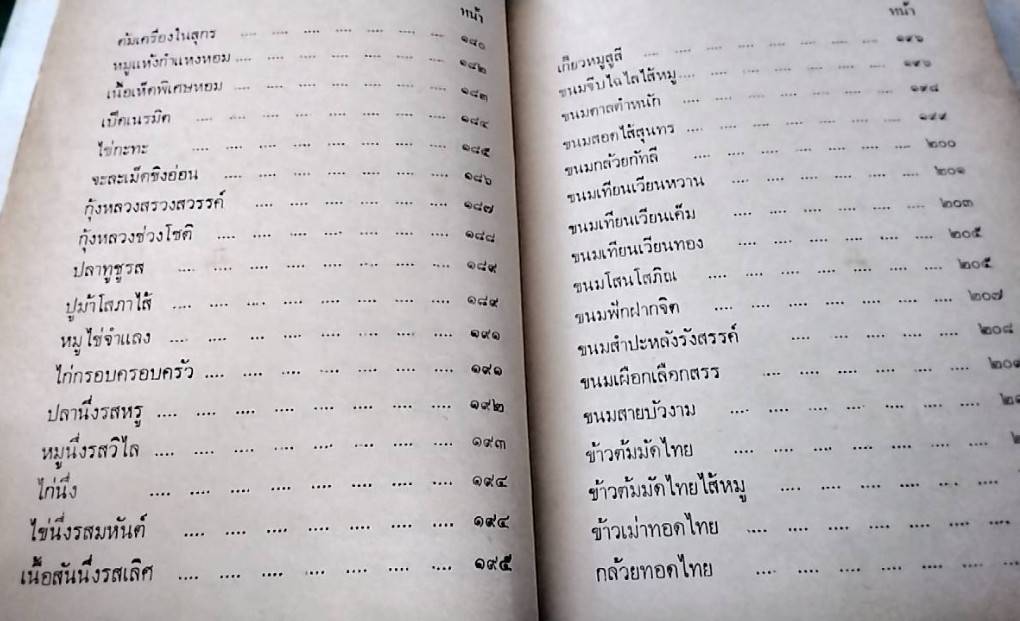 หน้า
ต้มเครื่องในสุกร .... .... .... .... .... .... ๑๘๐
หมูแห้งกำแหงหอม .... .... .... .... .... .... ๑๘๒
เนื้อเห็ดพิเศษหอม .... .... .... .... .... .... ๑๘๓
เป็ดเนรมิต .... .... .... .... .... .... .... ๑๘๔
ไข่กะทะ .... .... .... .... .... .... .... ๑๘๕
จะละเม็ดขิงอ่อน .... .... .... .... .... .... ๑๘๖
กุ้งหลวงสรวงสวรรค์ .... .... .... .... .... .... ๑๘๗
กุ้งหลวงช่วงโชติ .... .... .... .... .... .... .... ๑๘๘
ปลาทูชูรส .... .... .... .... .... .... .... .... ๑๘๙
ปูม้าโสภาไส้ .... .... .... .... .... .... .... .... ๑๘๙
หมูไข่จำแลง .... .... .... .... .... .... .... .... ๑๙๑
ไก่กรอบครอบครัว .... .... .... .... .... .... .... ๑๙๑
ปลานึ่งรสหรู .... .... .... .... .... .... .... .... ๑๙๒
หมูนึ่งรสวิไล .... .... .... .... .... .... .... .... ๑๙๓
ไก่นึ่ง .... .... .... .... .... .... .... .... ๑๙๔
ไข่นึ่งรสมหันต์ .... .... .... .... .... .... .... ๑๙๔
เนื้อสันนึ่งรสเลิศ .... .... .... .... .... .... .... ๑๙๕
หน้า
เกี๊ยวหมูสูสี .... .... .... .... .... .... .... ๑๙๖
ขนมจีบไฉไลไส้หมู .... .... .... .... .... .... ๑๙๖
ขนมตาลตำหนัก .... .... .... .... .... .... ๑๙๘
ขนมสอดไส้สุนทร .... .... .... .... .... .... ๑๙๙
ขนมกล้วยกัทลี .... .... .... .... .... .... ๒๐๐
ขนมเทียนเวียนหวาน .... .... .... .... .... ๒๐๑
ขนมเทียนเวียนเค็ม .... .... .... .... .... ๒๐๓
ขนมเทียนเวียนทอง .... .... .... .... .... ๒๐๕
ขนมโสนโสภิณ .... .... .... .... .... .... ๒๐๕
ขนมฟักฝากจิต .... .... .... .... .... .... .... ๒๐๗
ขนมสำปะหลังรังสรรค์ .... .... .... .... .... ๒๐๘
ขนมเผือกเลือกสรร .... .... .... .... .... ....
ขนมสายบัวงาม .... .... .... .... .... .... ....
ข้าวต้มมัดไทย .... .... .... .... .... .... ....
ข้าวต้มมัดไทยไส้หมู .... .... .... .... .... ....
ข้าวเม่าทอดไทย .... .... .... .... .... .... ....
กล้วยทอดไทย .... .... .... .... .... .... ....